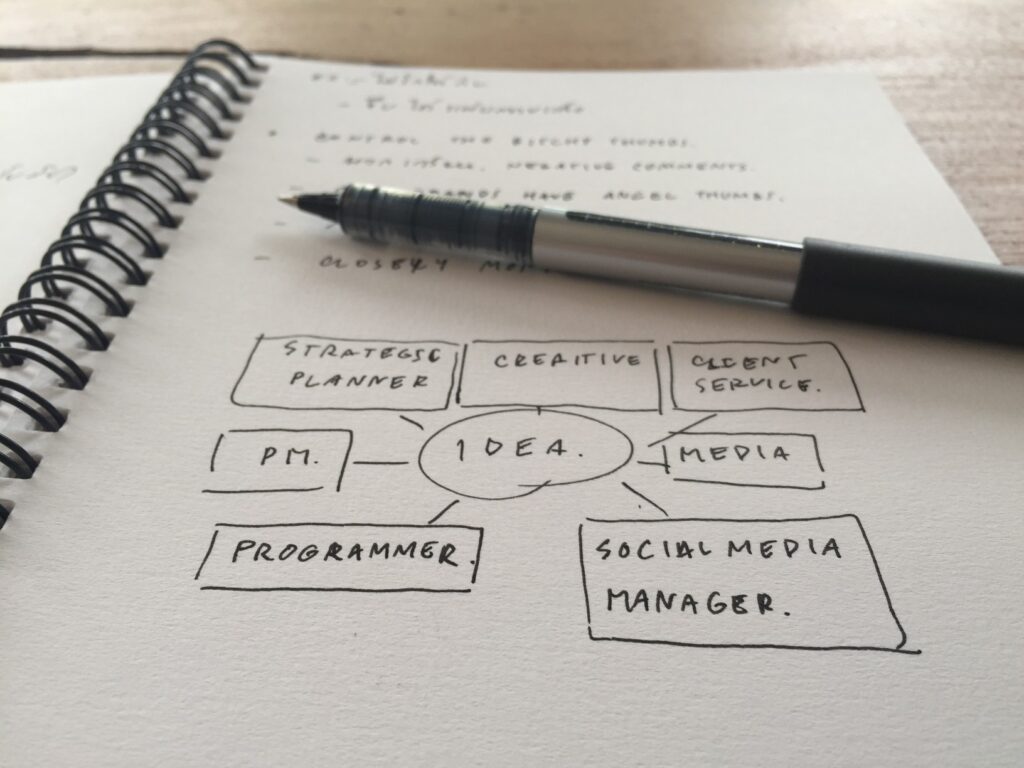 CONTROL THE BITCHY THUMBS.
NEGATIVE COMMENTS.
BRANDS HAVE ANGEL THUMBS.
CLOSELY
STRATEGIC
PLANNER
CREAITIVE
CLIENT
SERVICE.
PM.
IDEA.
MEDIA
PROGRAMMER.
SOCIAL MEDIA
MANAGER.